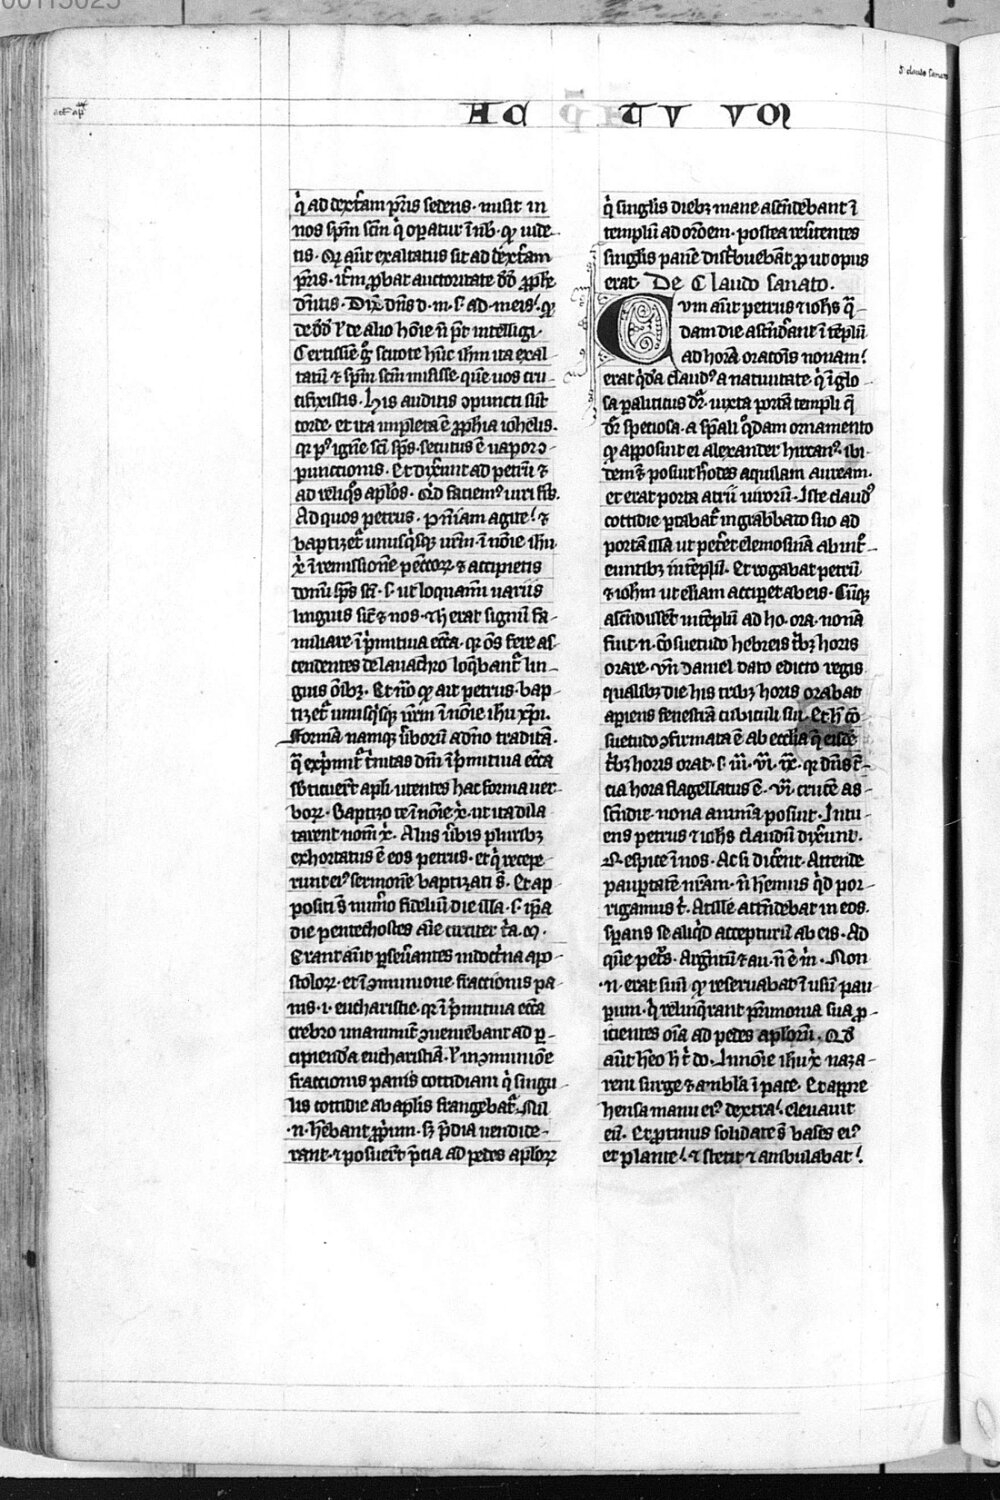 AC TV VM
q̉ ad dext̉am pr̄is sedens · misit in
nos sp̄m sc̄m q̉ oꝑatur ī nob̄ · qꝫ uide
tis · Qꝛ aūt exaltatus sit ad dext̉am
pr̄is · it̉m ꝓbat auctoritate dd̄ ꝓphe
dicentis · Dix̉ dn̄s d · m · s · ad · meis · qꝫ
de dd̄ ł de alio hōie n̄ pōt intelligi ·
Certissīe g̉ scitote hūc ihm ita exal
tatū ⁊ sp̄m sc̄m misisse · quē uos cru
cifixistis · His auditis ꝯpuncti sūt
corde · et ita impleta ē ꝓphīa iohelis ·
qꝛ pꝰ ignē sc̄i sp̄s · secutus ē uapor ꝯ
punctionis · Et dix̉unt ad petrū ⁊
ad reliq̉s apl̄os · Qͥd faciemꝰ uiri fr̄s ·
Ad quos petrus · pn̄iam agite ⁊
baptizet̉ unusqͥsqꝫ ur̄m · ī nōie ihu
x̉ ī remissionē pec̄coꝝ ⁊ accipietis
donū sp̄s sc̄i · s · ut loquamī uariis
linguis sic̄ ⁊ nos · H̉ erat signū fa
miliare ī pͥmitiua ecc̄a · qꝛ ōs fere as
cendentes de lauachro loq̄bant̉ lin
guis ōibꝫ · Et nō qꝫ ait petrus · bap
tizet̉ unusqͥsqꝫ ur̄m ī nōie ihu xp̄i ·
Formā namqꝫ ū̉borū a dn̄o traditā ·
q̄ exp̉mit̉ t̉nitas dn̄i ī pͥmitiua ecc̄a
s̄bticuer̄t apl̄i utentes hac forma uer
boꝝ · Baptizo te ī nōie x̉ · ut ita dila
tarent nom̄ x̉ · Aliis ū̉bis pluribꝫ
exhortatus ē eos petrus · et q̉ recepe
runt eiꝰ sermonē baptizati s̄ · Et ap
positi s̄ num̉o fideliū die illa · s · ip̄a
die pentechostes aīe circiter t̉a · m̄ ·
Erant aūt ꝑseūantes in doct̉na apo
stoloꝝ · et ī ꝯmunione fractionis pa
nis · i · eucharistie · qꝛ ī pͥmitiua ecc̄a
crebro unanimit̉ ꝯueniebant ad ꝑ
cipienda eucharistiā · ł in ꝯmuniōe
fractionis panis cottidiani q̉ singu
lis cottidie ab apl̄is frangebat̉ · Nil
·n· hēbant ꝓprium · sꝫ p̄dia uendide
rant · ⁊ posuer̄t p̄cia ad pedes apl̄oꝝ
q̉ singl̉is diebꝫ mane ascēdebant ī
templū ad orōem · postea redeuntes
singl̉is panē distͥbuebāt ꝓ ut opus
erat · De Claudo sanato ·
Cum aūt petrus ⁊ iohs q̄
dam die ascēd̉ant ī tēplū
ad horā oratōis nonam
erat q̉dā claudꝰ a natiuitate · q̉ ī glo
sa paliticus dr̄ · iuxta portā templi q̄
dr̄ speciosa · a sp̄ali q̉dam ornamento
qꝫ apposuit ei alexander hircanꝰ · ibi
dem ⁊ posuit h̉odes aquilam auream ·
et erat porta atrii uirorū · Iste claudꝰ
cottidie portabat̉ in grabbato suo ad
portā illā ut pet̉et elemosinā ab int̉
euntibꝫ in tēplū · Et rogabat petrū
⁊ iohm ut el̄iam accip̉et ab eis · Cūqꝫ
ascēdissēt in tēplū ad ho · ora · nonā
fuit · n · cōsuetudo hebreis t̉bꝫ horis
orare · vn̄ daniel dato edicto regis
qualibꝫ die his tribꝫ horis orabat
apiens fenestrā cubiculi sui · Et h̄ cō
suetudo ꝯfirmata ē ab eccl̄ia q̄ eisdē
t̉bꝫ horis orat · s · iii · vi · ix · qꝛ dn̄s t̉
cia hora flagellatus ē · vi · crucē as
cēdit · nona animā posuit · Intu
ens petrus ⁊ iohs claudū dix̉unt ·
Respice ī nos · Ac si dic̉ent · Attende
paupertatē nr̄am · n̄ hēmus q̉d por
rigamus t̉ · At ille attēdebat in eos ·
sp̉ans se aliq̉d accepturū ab eis · Ad
quē pet̉s · Argētū ⁊ au · n̄ ē m̉ · Non
· n · erat suū qꝫ reseruabat ī usū pau
perum · q̉ relinq̉rant pr̄imonia sua ꝓ
icientes oīa ad pedes apl̄orū · Qd̄
aūt hēo h̄ t̉ do · In nōie ihu x̉ naza
reni surge ⁊ ambla ī pace · Et appre
hensa manu eiꝰ dextra eleuauit
eū · Et ꝓtinus solidate s̄ bases eiꝰ
et plante ⁊ stetit ⁊ ambulabat